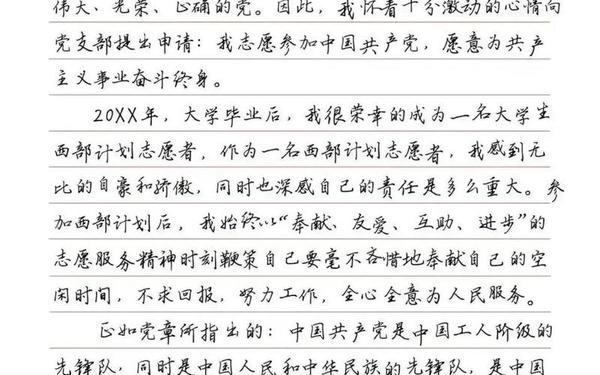 伟大、光荣、正确的党。因此，我怀着十分激动的心情向
党支部提出申请：我志愿参加中国共产党，愿意为共产
主义事业奋斗终身。
20XX年，大学毕业后，我很荣幸的成为一名大学生
西部计划志愿者，作为一名西部计划志愿者，我感到无
比的自豪和骄傲，同时也深感自己的责任是多么重大。参
加西部计划后，我始终以“奉献、友爱、互助、进步”的
志愿服务精神时刻鞭策自己要毫不吝惜地奉献自己的空
闲时间，不求回报，努力工作，全心全意为人民服务。
正如党章所指出的：中国共产党是中国工人阶级的
先锋队，同时是中国人民和中华民族的先锋队，是中国